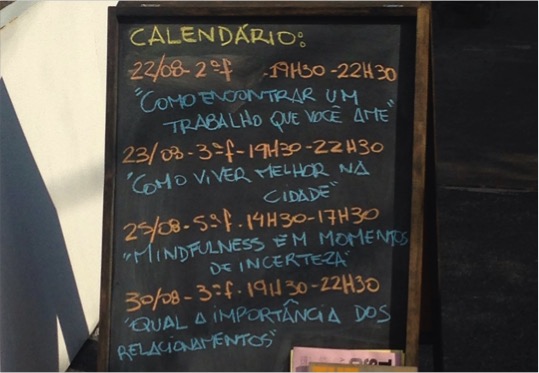 CALENDÁRIO:
22/08 - 2ªf - 19H30 - 22H30
"COMO ENCONTRAR UM
TRABALHO QUE VOCÊ AME"
23/08 - 3ªf - 19H30 - 22H30
"COMO VIVER MELHOR NA
CIDADE"
25/08 - 5ªf - 14H30 - 17H30
"MINDFULNESS EM MOMENTOS
DE INCERTEZA"
30/08 - 3ªf. 19H30 - 22H30
"QUAL A IMPORTÂNCIA DOS
RELACIONAMENTOS"